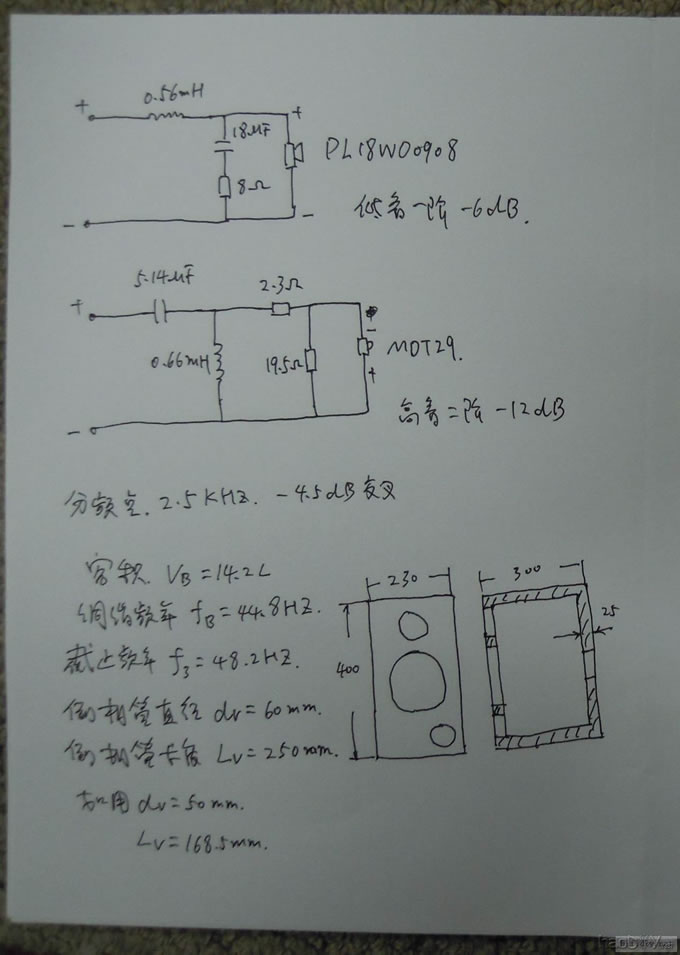 0.56mH
+
+
18μF
8Ω
PL18WO0908
-
-
低音一阶 -6dB.
5.14μF
2.3Ω
+
-
0.66mH
19.5Ω
MDT29.
+
-
高音二阶 -12dB
分频点. 2.5KHZ. -4.5dB交叉
容积. VB=14.2L
调谐频率 fB=44.8HZ.
截止频率 f3=48.2HZ.
倒相管直径 dv=60mm.
倒相管长度 Lv=250mm.
如用 dv=50mm.
Lv=168.5mm.
230
300
400
25